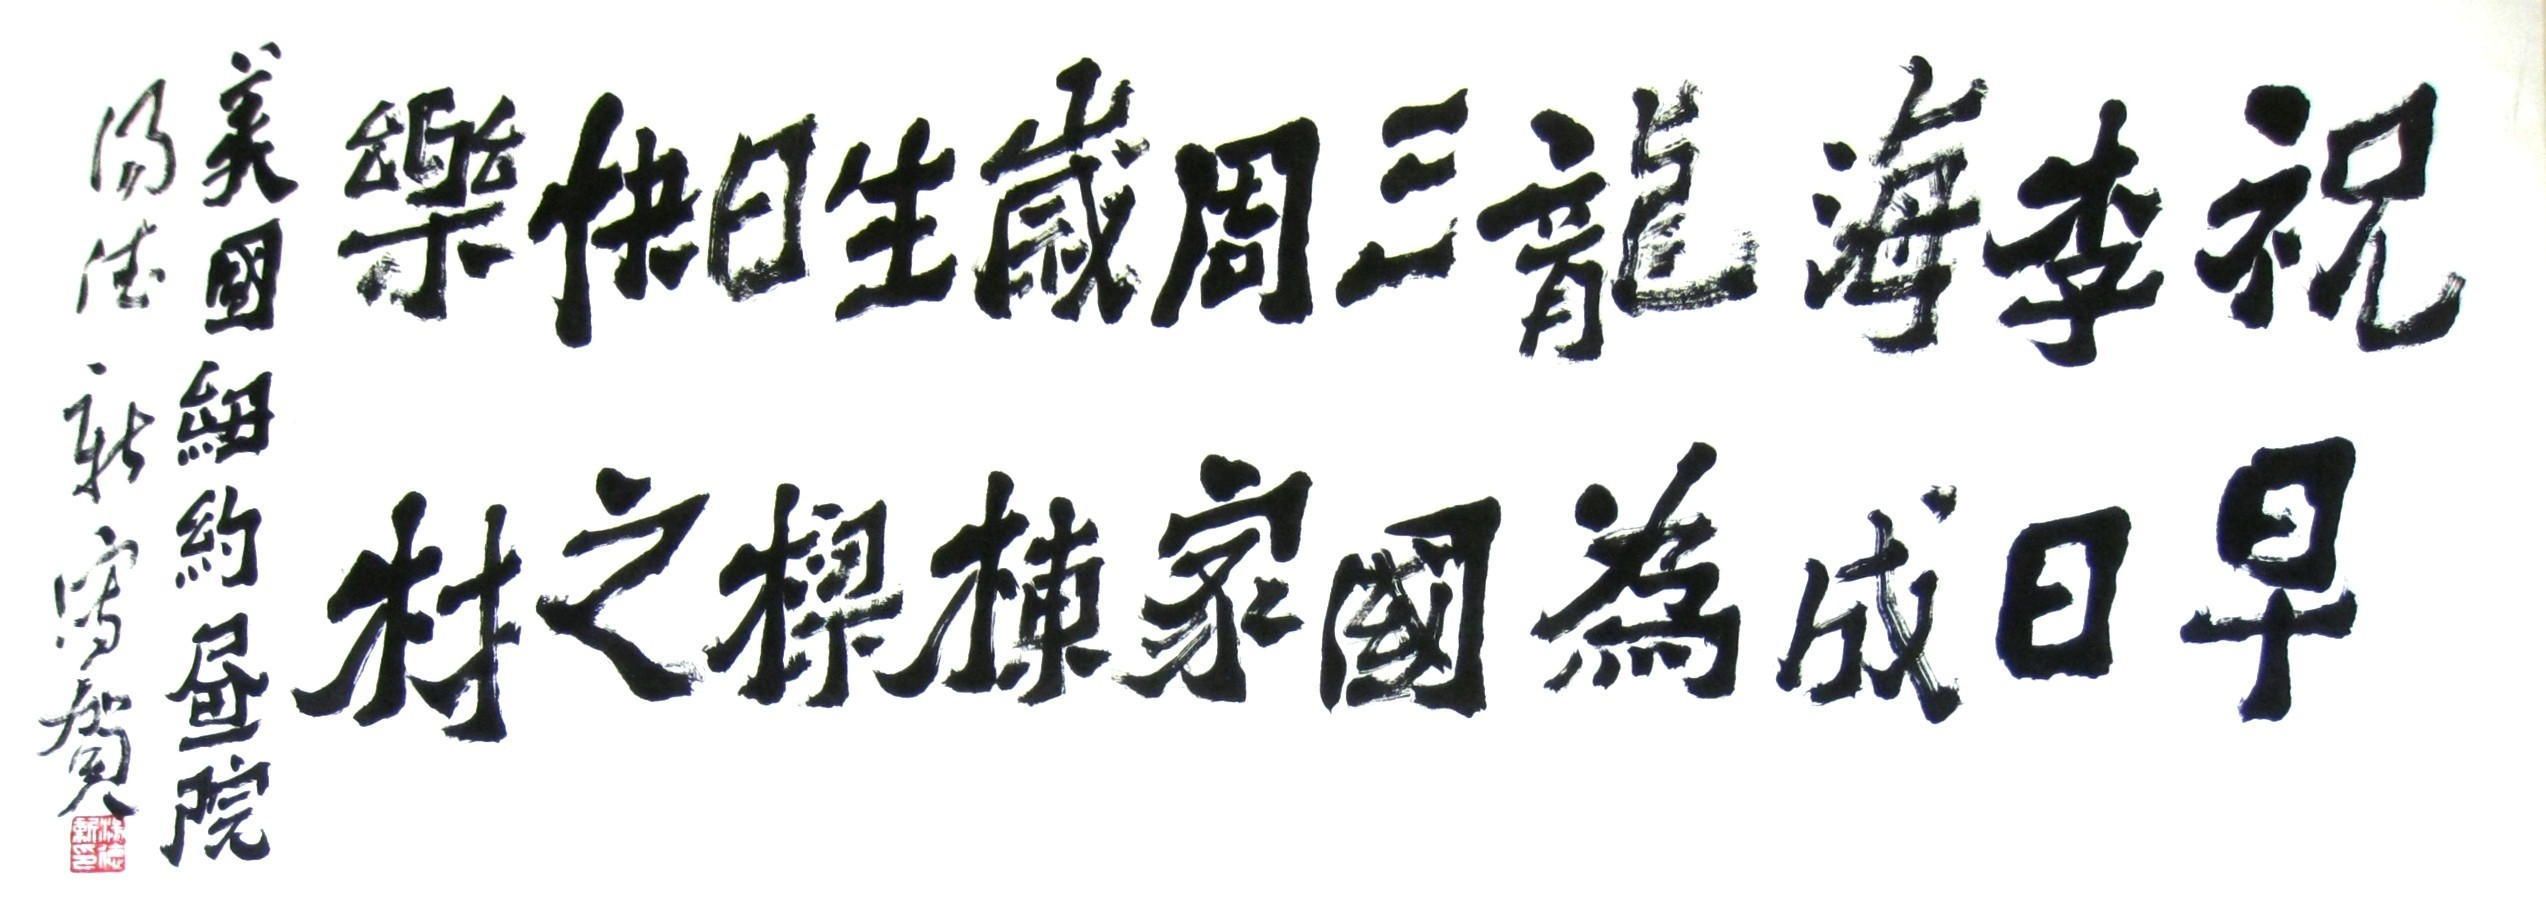 祝李海龍三周歲生日快樂
早日成為國家棟樑之材
美國紐約畫院
楊德新寫賀
楊德新印